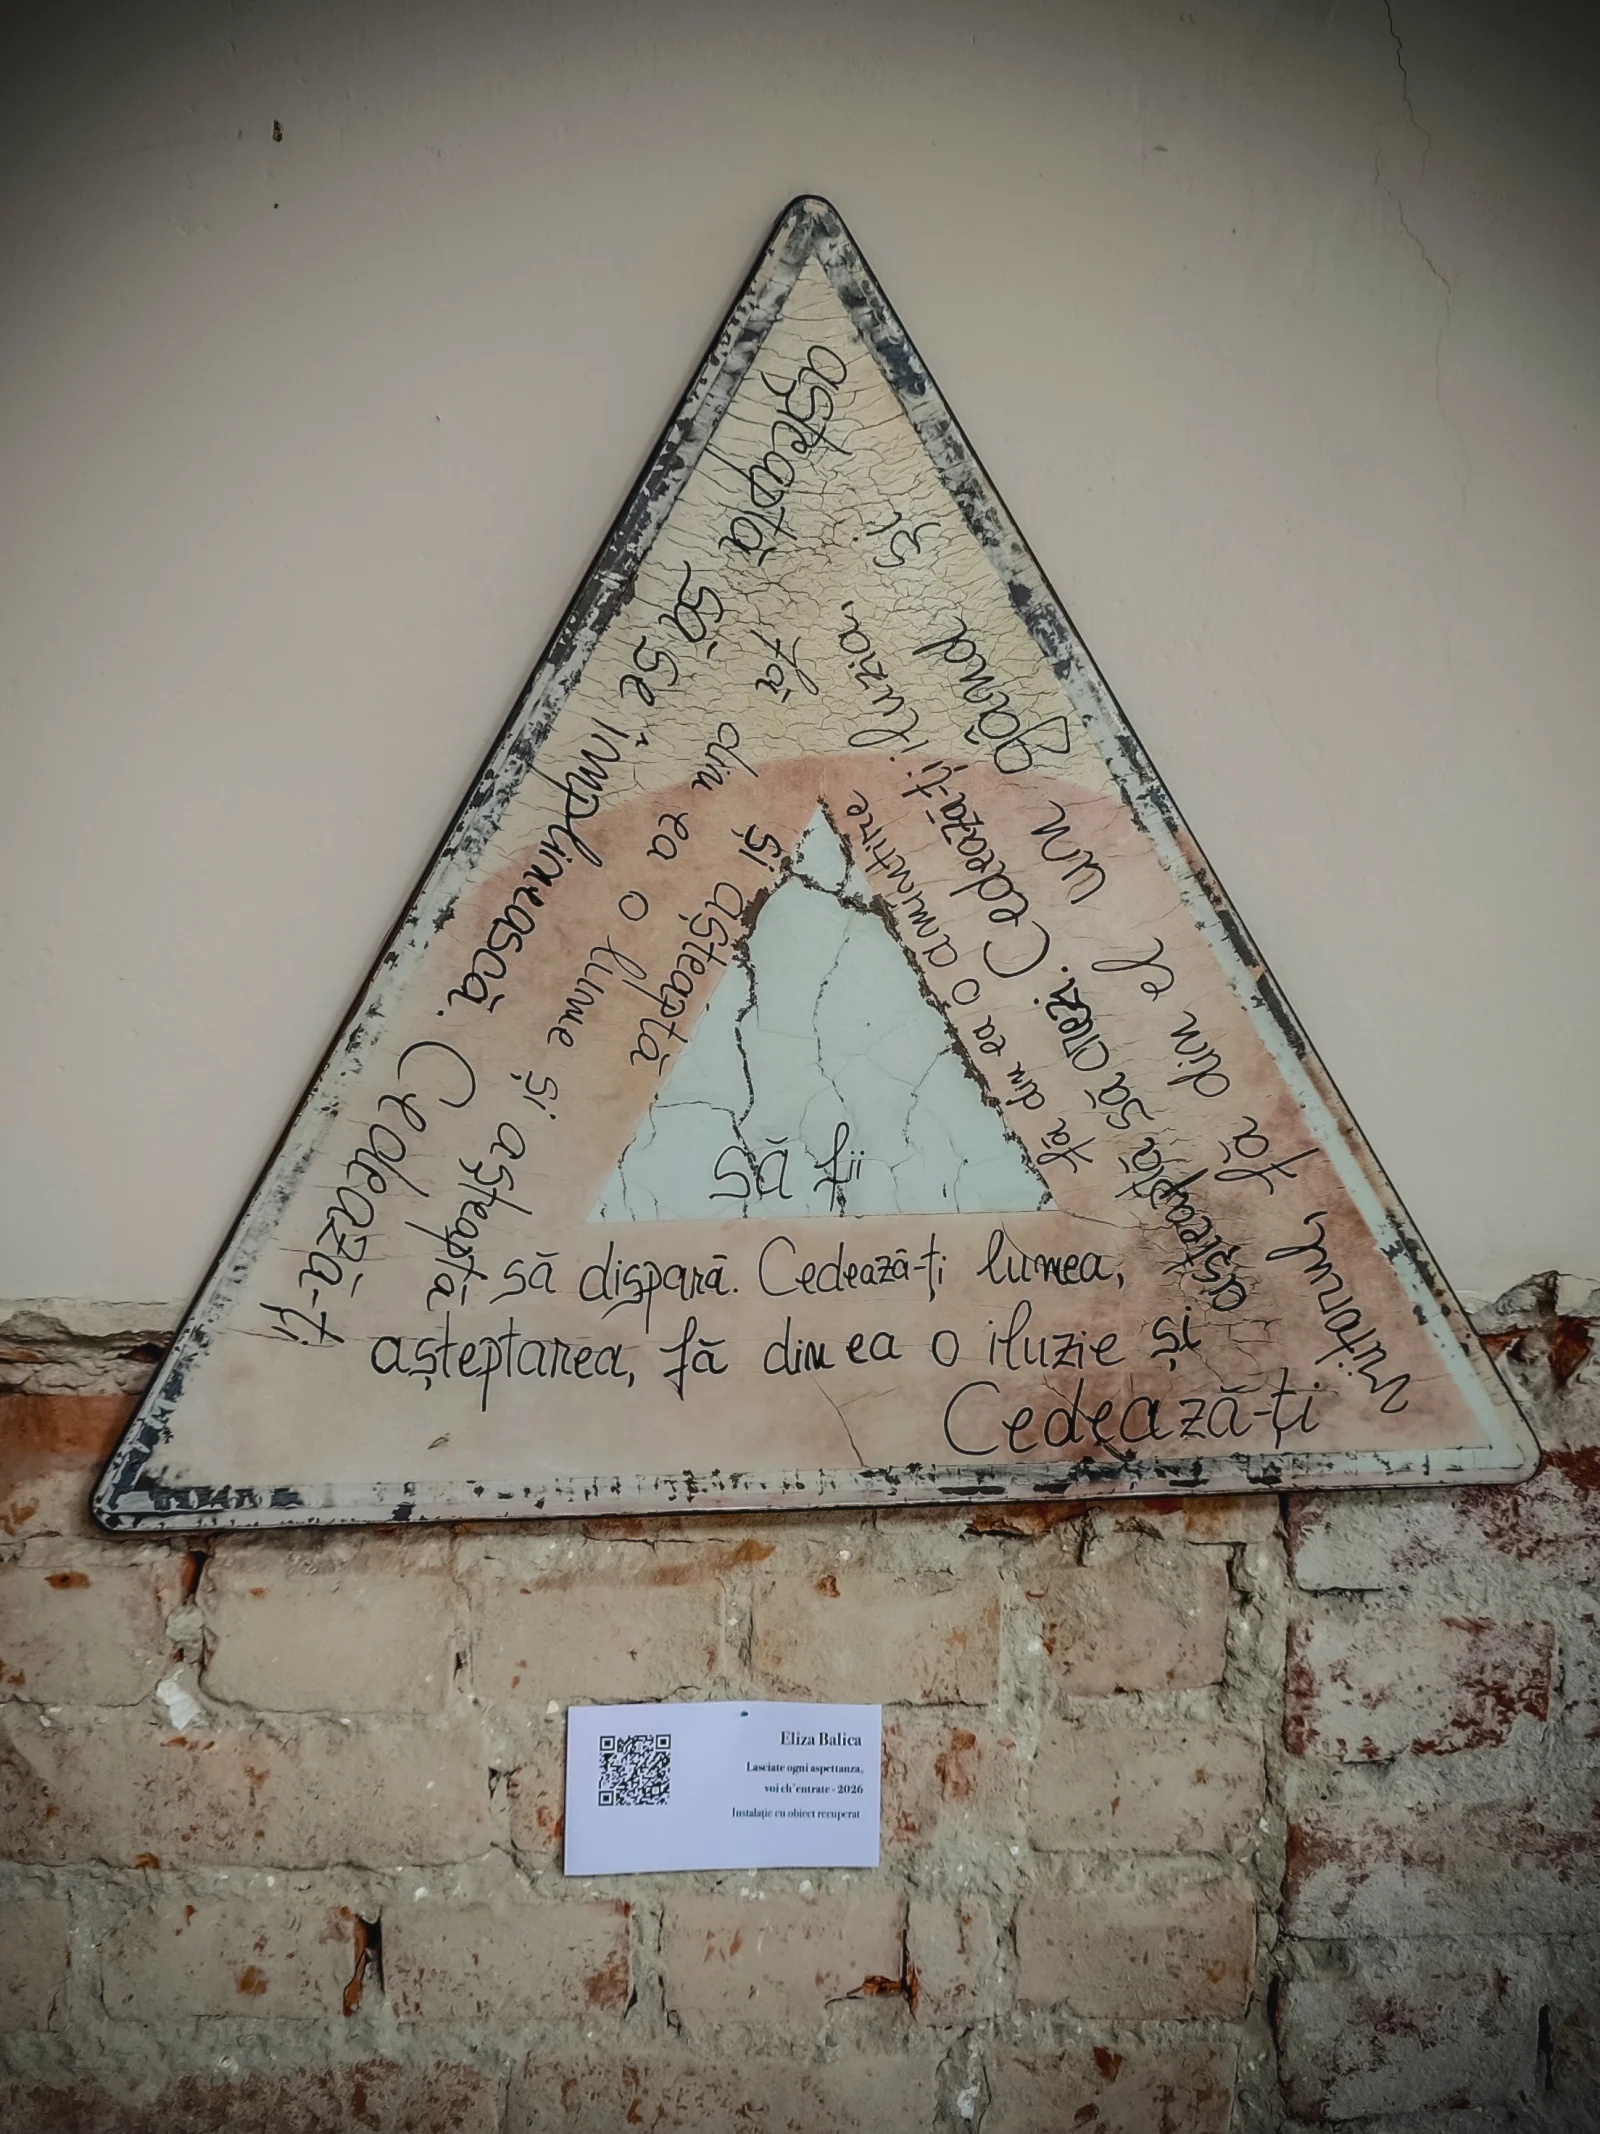 Cedează-ți
viitorul, fă din el un gând și
așteaptă să se împlinească. Cedează-ți
așteptarea, fă din ea o iluzie și
așteaptă să crezi. Cedează-ți iluzia,
fă din ea o lume și așteaptă
să dispară. Cedează-ți lumea,
fă din ea o amintire
și așteaptă
să fii
Eliza Balica
Lasciate ogni aspettanza,
voi ch'entrate - 2026
Instalație cu obiect recuperat